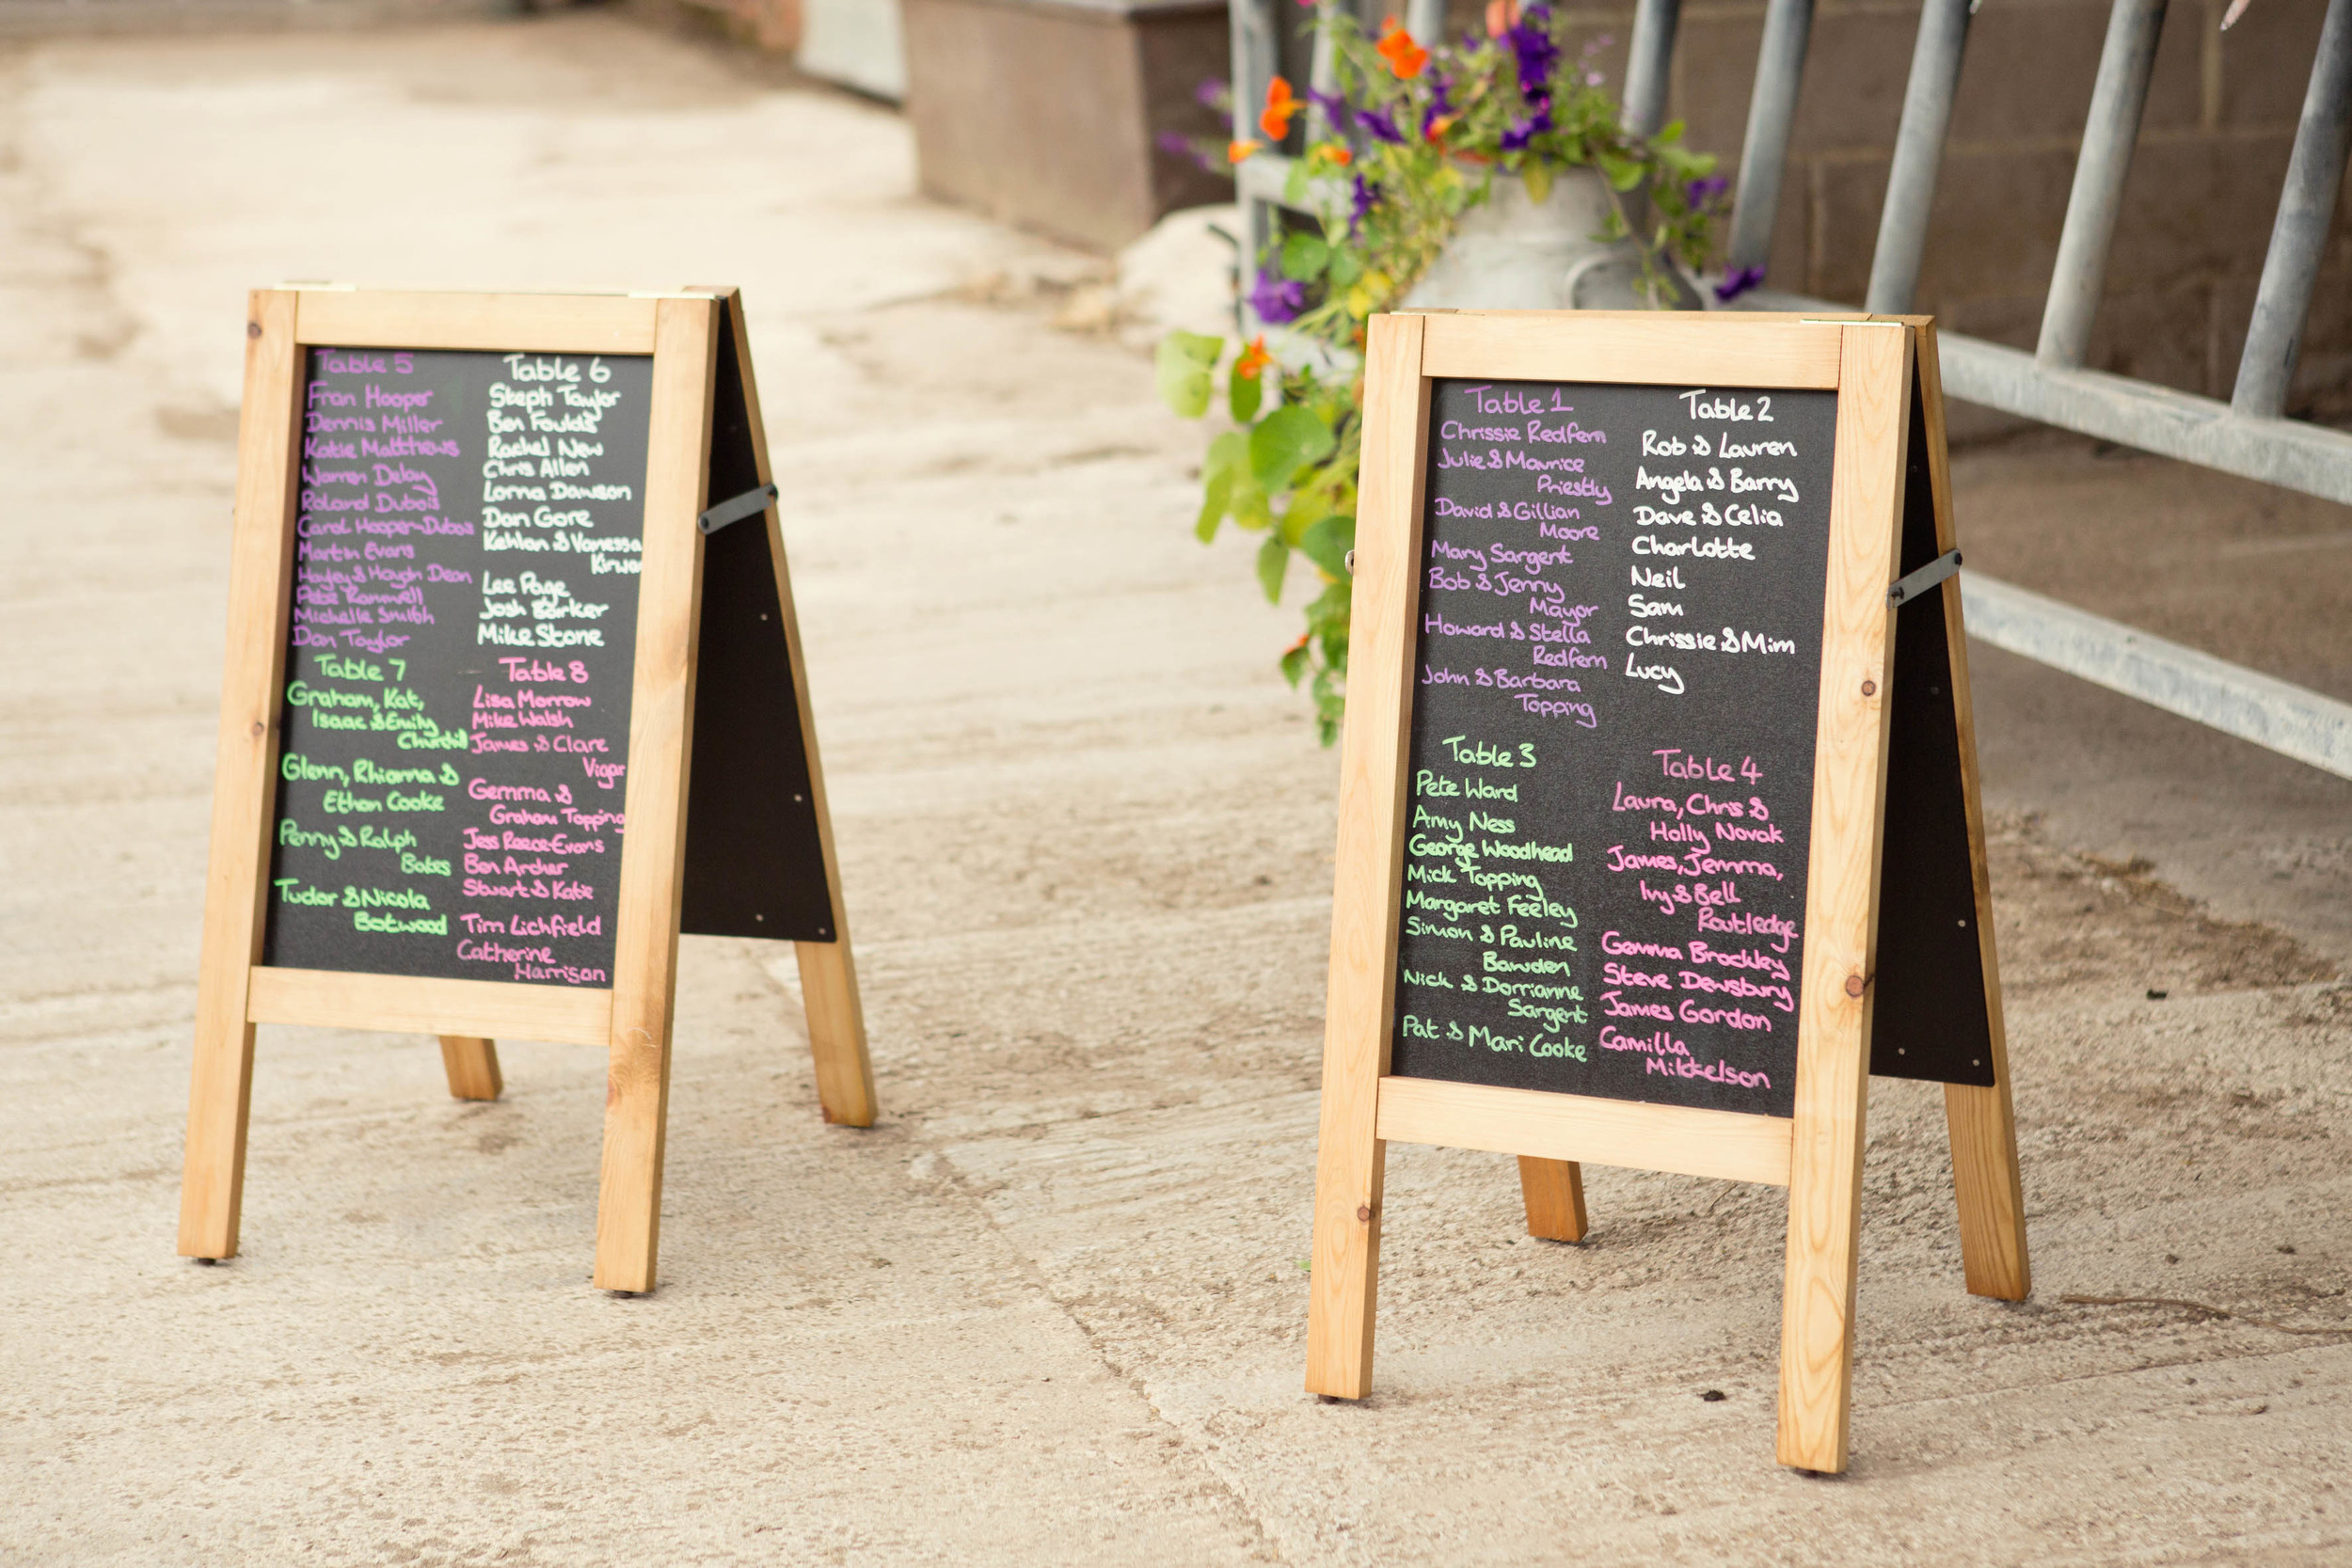 Table 5
Fran Hooper
Dennis Miller
Katie Matthews
Warren Delay
Roland Dubois
Carol Hooper-Dubois
Martin Evans
Hayley & Haydn Dean
Pete Rammell
Michelle Smith
Dan Taylor
Table 6
Steph Taylor
Ben Foulds
Rachel New
Chris Allen
Lorna Dawson
Dan Gore
Kehlan & Vanessa
Kirwan
Lee Page
Josh Barker
Mike Stone
Table 7
Graham, Kat,
Isaac & Emily
Churchill
Glenn, Rhianna &
Ethan Cooke
Penny & Ralph
Bates
Tudor & Nicola
Botwood
Table 8
Lisa Morrow
Mike Walsh
James & Clare
Vigar
Gemma &
Graham Topping
Jess Reece-Evans
Ben Archer
Stuart & Katie
Tim Lichfield
Catherine
Harrison
Table 1
Chrissie Redfern
Julie & Maurice
Priestly
David & Gillian
Moore
Mary Sargent
Bob & Jenny
Mayor
Howard & Stella
Redfern
John & Barbara
Topping
Table 2
Rob & Lauren
Angela & Barry
Dave & Celia
Charlotte
Neil
Sam
Chrissie & Mim
Lucy
Table 3
Pete Ward
Amy Ness
George Woodhead
Mick Topping
Margaret Feeley
Simon & Pauline
Bawden
Nick & Dorrianne
Sargent
Pat & Mari Cooke
Table 4
Laura, Chris &
Holly Novak
James, Jemma,
Ivy & Bell
Routledge
Gemma Brockley
Steve Dewsbury
James Gordon
Camilla
Mickelson